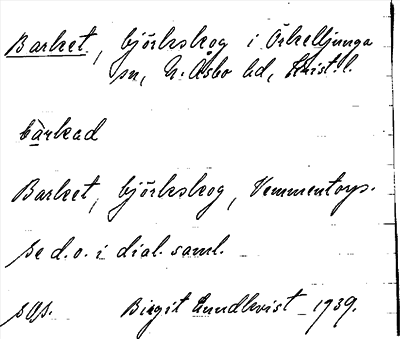 Barket, björkskog i Örkelljunga
sn, N. Åsbo hd, Krist. l.
bàrkad
Barket, björkskog, Vemmentorps.
se d.o. i dial. saml.
sgs. Birgit Lundkvist 1939.